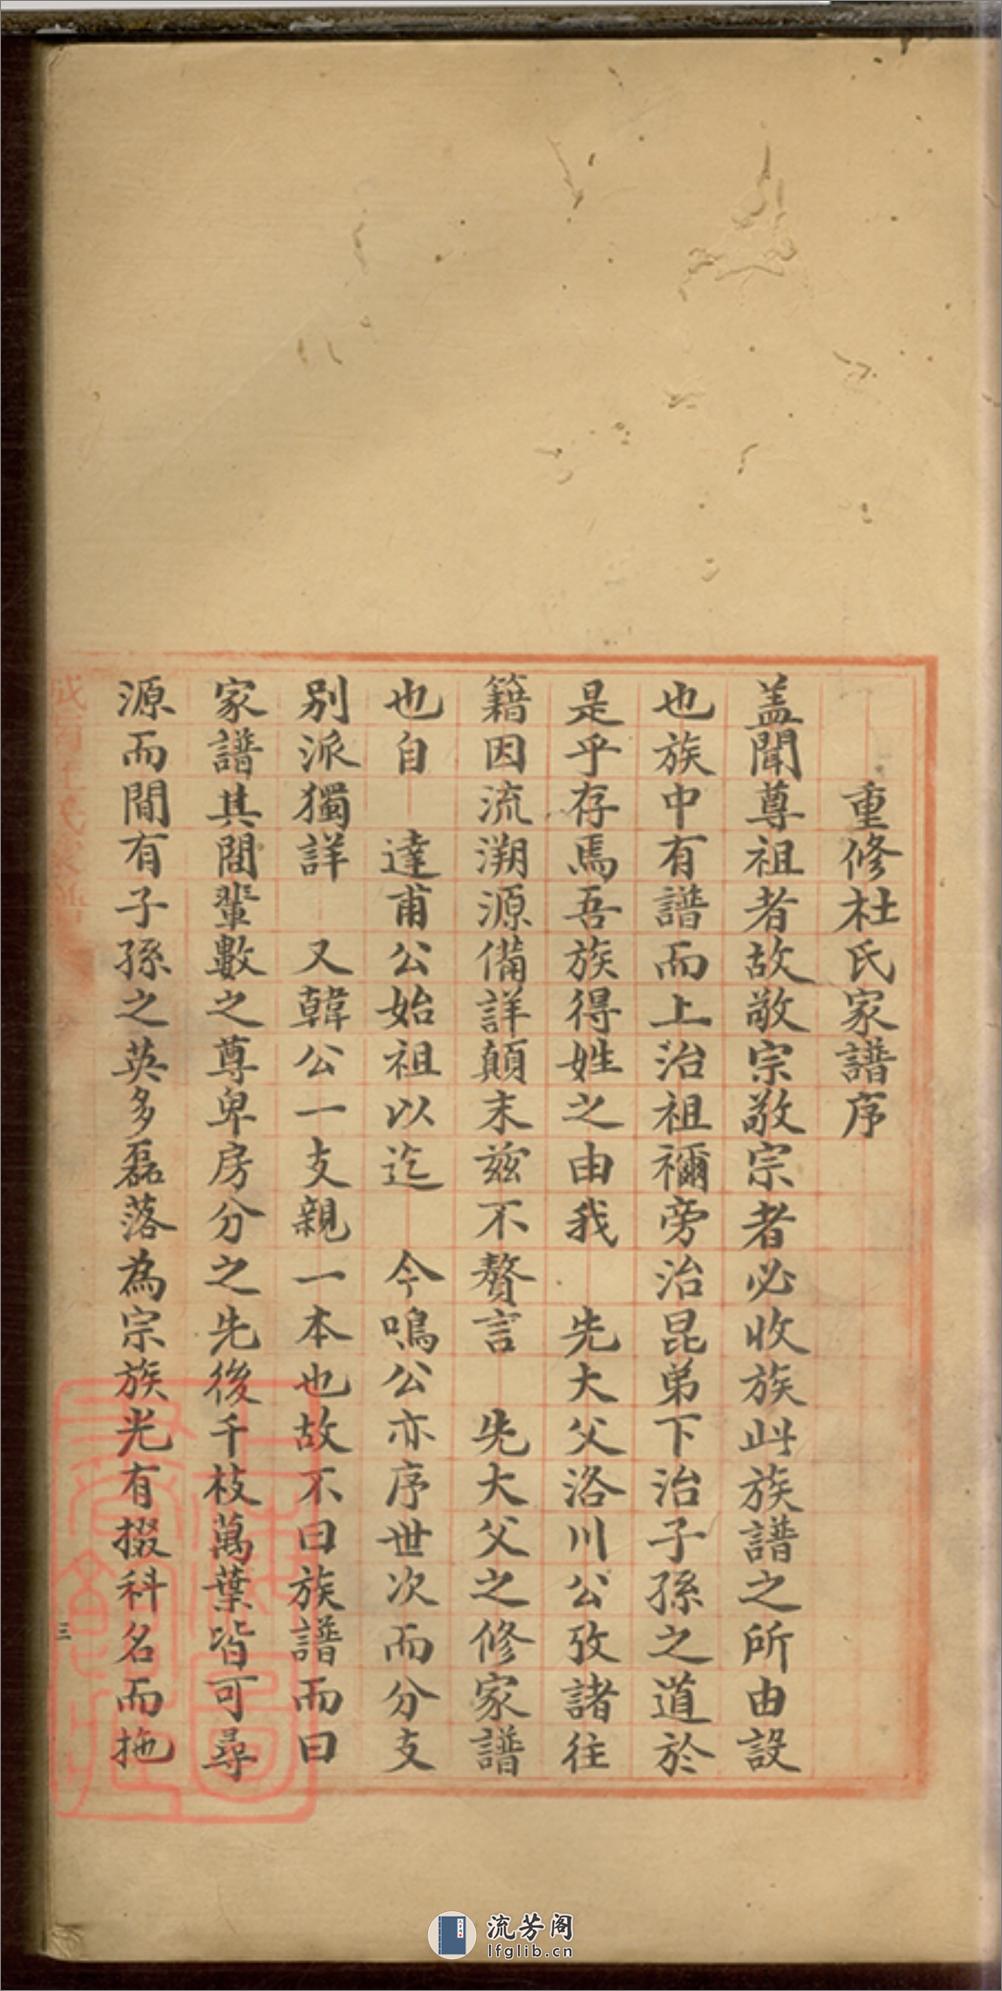 重修杜氏家譜序
盖聞尊祖者故敬宗敬宗者必收族此族譜之所由設
也族中有譜而上治祖禰旁治昆弟下治子孫之道於
是乎存焉吾族得姓之由我 先大父洛川公攷諸往
籍因流溯源備詳顛末茲不贅言 先大父之修家譜
也自 達甫公始祖以迄 今鳴公亦序世次而分支
別派獨詳 又韓公一支親一本也故不曰族譜而曰
家譜其間輩數之尊卑房分之先後千枝萬葉皆可尋
源而間有子孫之英多磊落為宗族光有掇科名而拖
三
流芳阁
lfglib.cn